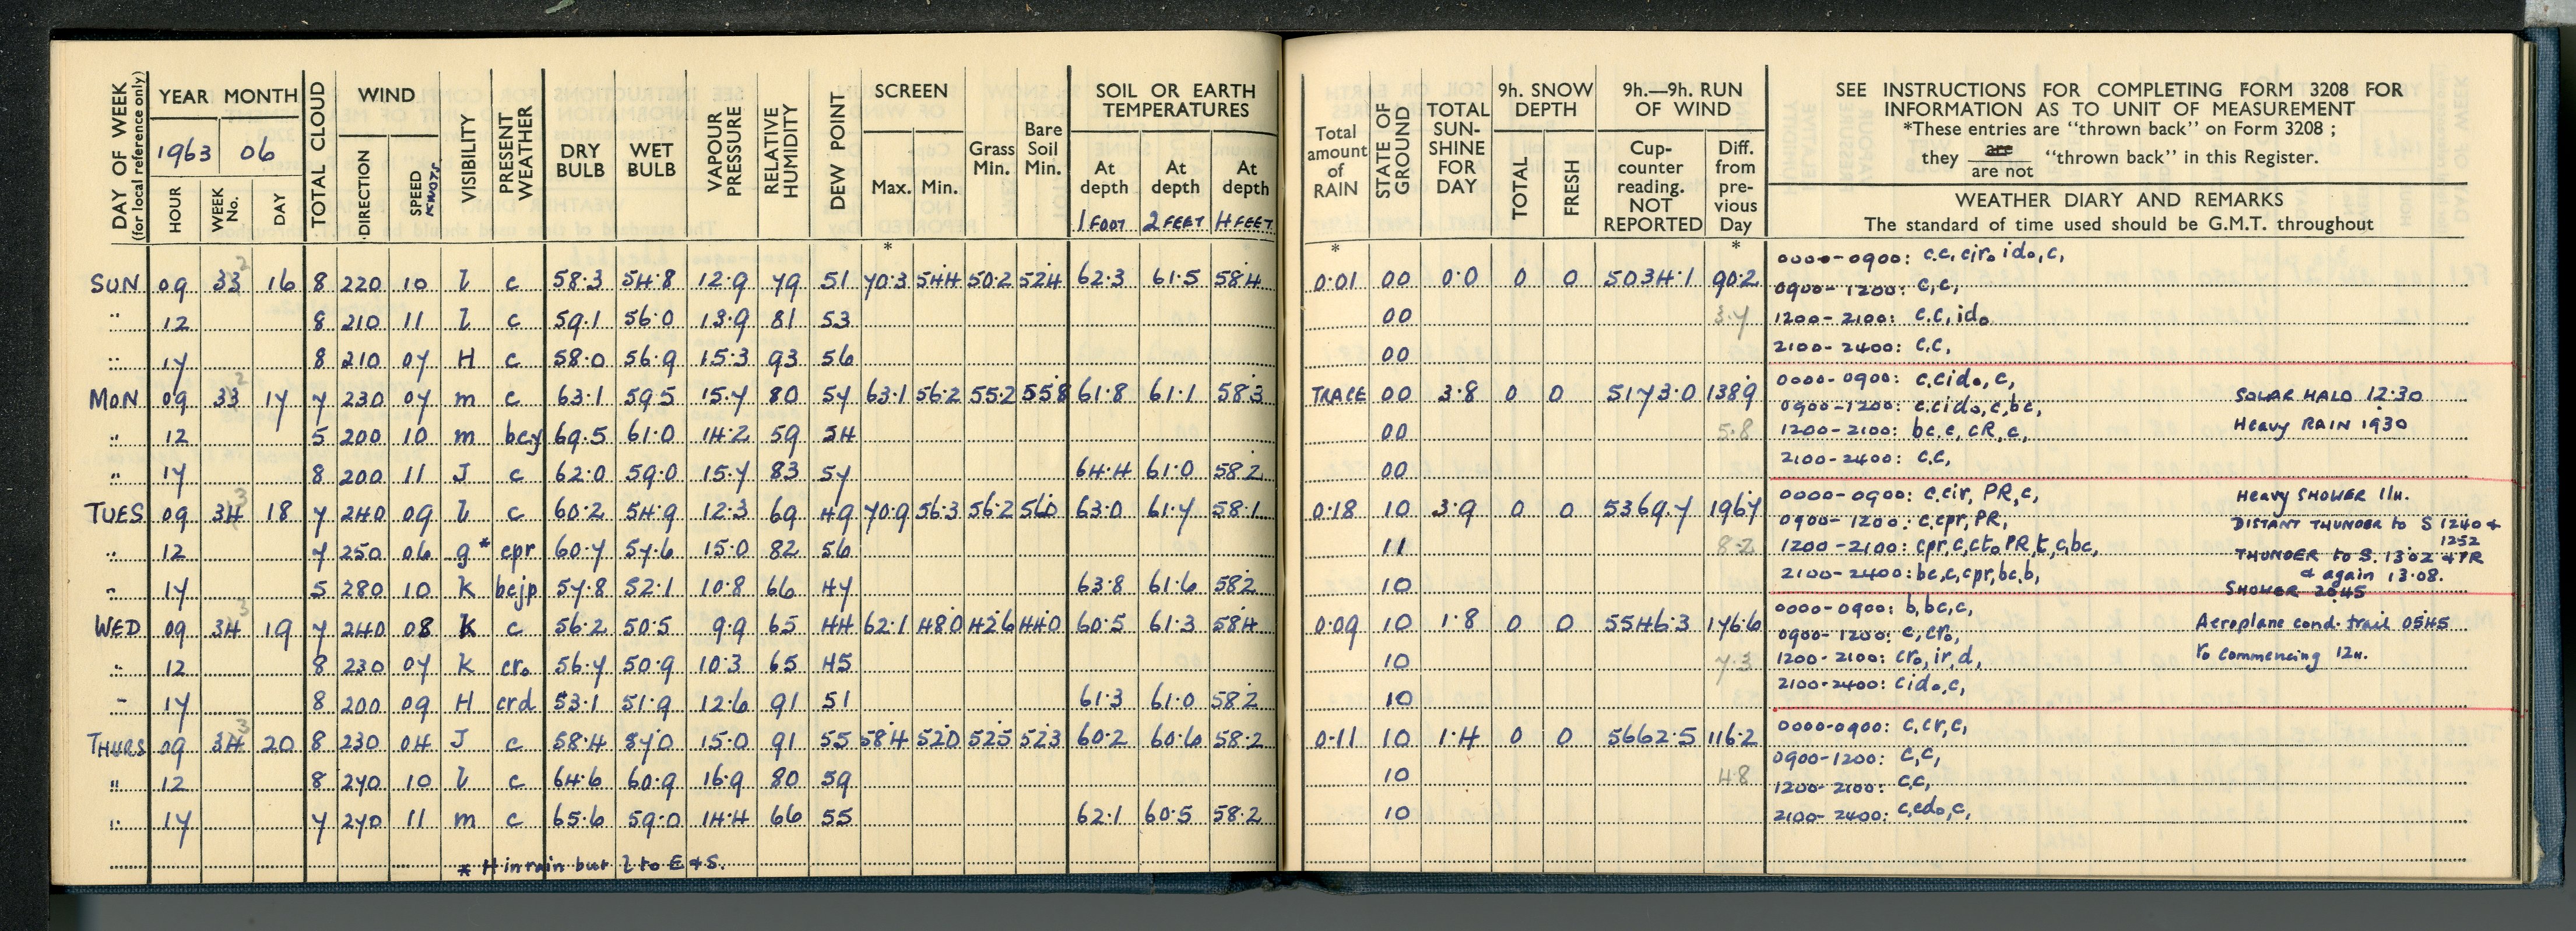 DAY OF WEEK (for local reference only) YEAR MONTH TOTAL CLOUD WIND VISIBILITY PRESENT WEATHER DRY BULB WET BULB VAPOUR PRESSURE RELATIVE HUMIDITY DEW POINT SCREEN Grass Min. Bare Soil Min. SOIL OR EARTH TEMPERATURES
1963 06
HOUR WEEK No. DAY DIRECTION SPEED KNOTS Max. Min. At depth At depth At depth
1 FOOT 2 FEET 4 FEET
Total amount of RAIN STATE OF GROUND TOTAL SUN-SHINE FOR DAY 9h. SNOW DEPTH TOTAL FRESH 9h.—9h. RUN OF WIND Cup-counter reading. NOT REPORTED Diff. from pre-vious Day
SEE INSTRUCTIONS FOR COMPLETING FORM 3208 FOR
INFORMATION AS TO UNIT OF MEASUREMENT
*These entries are "thrown back" on Form 3208 ;
they are / are not "thrown back" in this Register.
WEATHER DIARY AND REMARKS
The standard of time used should be G.M.T. throughout
* * *
SUN 09 33 2 16 8 220 10 l c 58.3 54.8 12.9 79 51 70.3 54.4 50.2 52.4 62.3 61.5 58.4 0.01 00 0.0 0 0 5034.1 90.2 0000-0900: c.c, cir₀ id₀, c,
0900-1200: c,c,
" 12 8 210 11 l c 59.1 56.0 13.9 81 53 00 3.7 1200-2100: c.c, id₀
" 17 8 210 07 H c 58.0 56.9 15.3 93 56 00 2100-2400: c.c,
MON 09 33 2 17 7 230 07 m c 63.1 59.5 15.7 80 57 63.1 56.2 55.2 55.8 61.8 61.1 58.3 TRACE 00 3.8 0 0 5173.0 138.9 0000-0900: c.cid₀, c, SOLAR HALO 12:30
0900-1200: c.cid₀, c, bc,
" 12 5 200 10 m bcy 69.5 61.0 14.2 59 54 00 5.8 1200-2100: bc.c, cR, c, Heavy RAIN 1930
" 17 8 200 11 J c 62.0 59.0 15.7 83 57 64.4 61.0 58.2 00 2100-2400: c.c,
TUES 09 34 3 18 7 240 09 l c 60.2 54.9 12.3 69 49 70.9 56.3 56.2 56.0 63.0 61.7 58.1 0.18 10 3.9 0 0 5369.7 196.7 0000-0900: c.cir, PR, c, Heavy SHOWER 11H.
0900-1200: c.cpr, PR, DISTANT THUNDER to S 1240 + 1252
" 12 7 250 06 g* cpr 60.7 57.6 15.0 82 56 11 8.2 1200-2100: cpr, c, ct₀ PR, t, c, bc, THUNDER to S. 1302 + PR
" 17 5 280 10 K bcjp 57.8 52.1 10.8 66 47 63.8 61.6 58.2 10 2100-2400: bc, c, cpr, bc, b, & again 13.08.
SHOWER 2045
WED 09 34 3 19 7 240 08 K c 56.2 50.5 9.9 65 44 62.1 48.0 42.6 44.0 60.5 61.3 58.4 0.09 10 1.8 0 0 5546.3 176.6 0000-0900: b, bc, c, Aeroplane cond. trail 0545
0900-1200: c, cr₀,
" 12 8 230 07 K cr₀ 56.7 50.9 10.3 65 45 10 7.3 1200-2100: cr₀, ir, d, r₀ commencing 12H.
" 17 8 200 09 H crd 53.1 51.9 12.6 91 51 61.3 61.0 58.2 10 2100-2400: cid₀, c,
THURS 09 34 3 20 8 230 04 J c 58.4 57.0 15.0 91 55 58.4 52.0 52.5 52.3 60.2 60.6 58.2 0.11 10 1.4 0 0 5662.5 116.2 0000-0900: c, cr, c,
0900-1200: c, c,
" 12 8 270 10 l c 64.6 60.9 16.9 80 59 10 4.8 1200-2100: c.c,
" 17 7 270 11 m c 65.6 59.0 14.4 66 55 62.1 60.5 58.2 10 2100-2400: c, cd₀, c,
* H in rain but l to E & S.